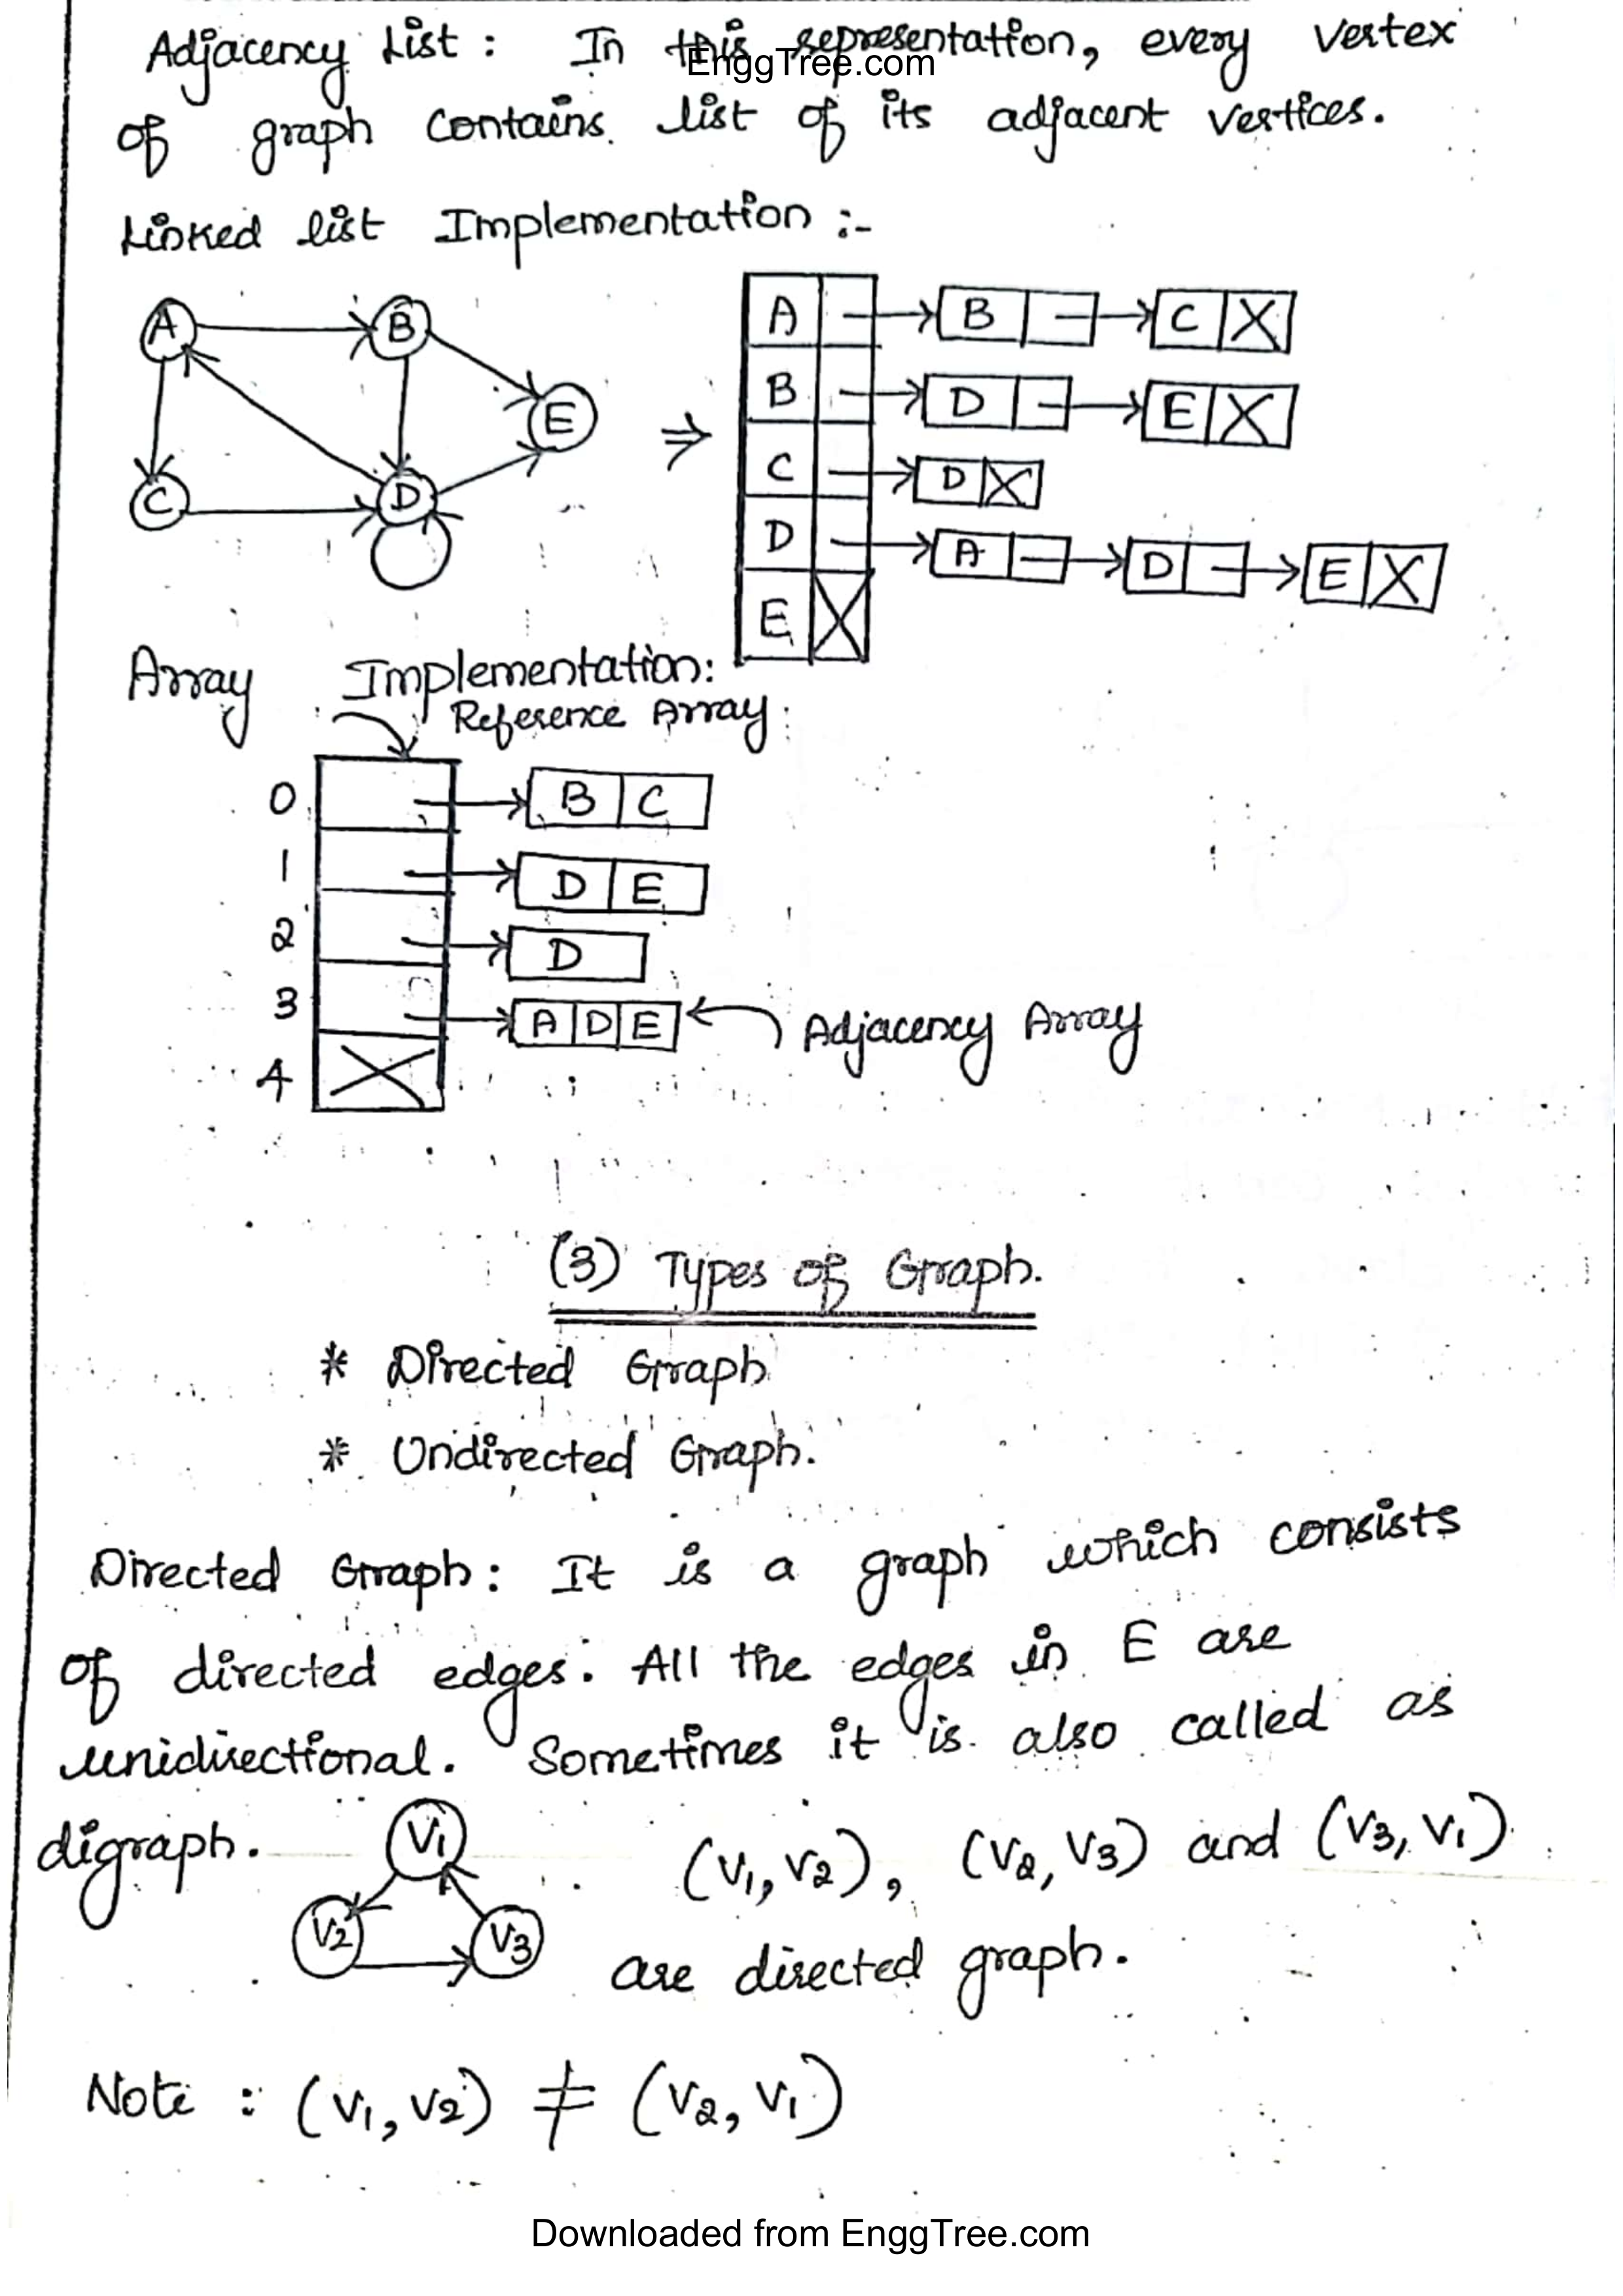 Adjacency List : In this representation, every vertex
EnggTree.com
of graph contains list of its adjacent vertices.
Linked list Implementation :-
A B E C D
A B C X
B D E X
C D X
D A D E X
E X
⇒
Array Implementation:
Reference Array:
0 B C
1 D E
2 D
3 A D E Adjacency Array
4 X
(3) Types of Graph.
* Directed Graph
* Undirected Graph.
Directed Graph : It is a graph which consists
of directed edges. All the edges in E are
unidirectional. Sometimes it is also called as
digraph. V1 (V1, V2), (V2, V3) and (V3, V1)
V2 V3 are directed graph.
Note : (V1, V2) ≠ (V2, V1)
Downloaded from EnggTree.com